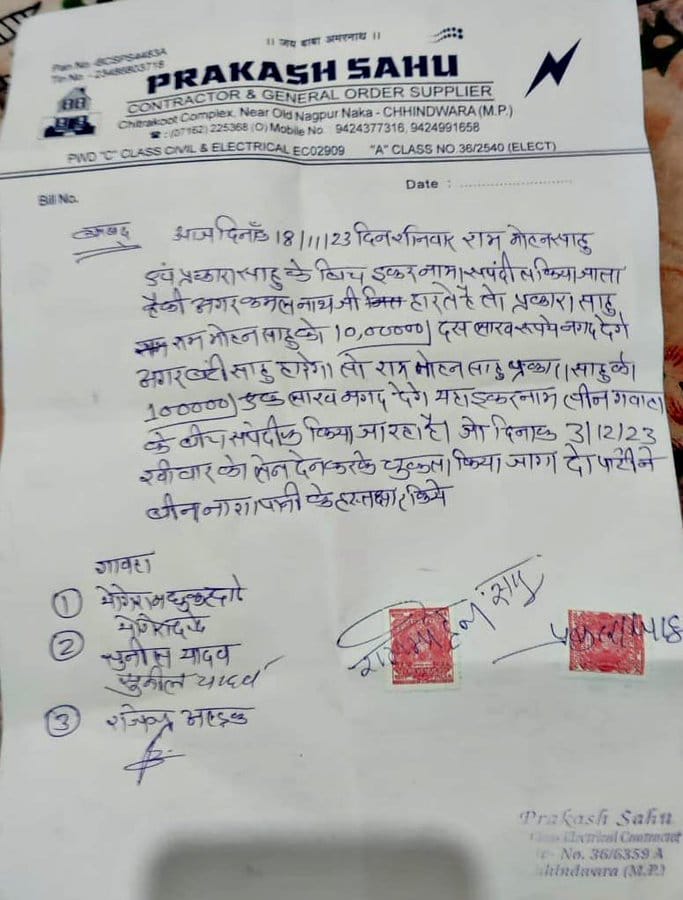 ।। जय बाबा अमरनाथ ।।
Pan No -BCSPS4463A
Tin No - 23486803718
PRAKASH SAHU
CONTRACTOR & GENERAL ORDER SUPPLIER
Chitrakoot Complex, Near Old Nagpur Naka - CHHINDWARA (M.P.)
☎ : (07162) 225368 (O) Mobile No. 9424377316, 9424991658
PWD "C" CLASS CIVIL & ELECTRICAL EC02909 "A" CLASS NO 36/2540 (ELECT)
Bill No.
Date :
आज दिनाँक 18/11/23 दिन शनिवार राम मोहन साहु
एवं प्रकाश साहु के बिच इकरनामा संपादीत किया जाता
है की अगर कमलनाथ जी हारते है तो प्रकाश साहु
राम मोहन साहु को 10,00000/ दस लाख रूपये नगद देगे
अगर बंटी साहु हारेगा तो राम मोहन साहु प्रकाश साहु को
100000/ एक लाख नगद देगे यहा इकरनाम तीन गवाहा
के बीच किया जा रहा है। जो दिनाक 3/12/23
रवीवार को लेन देन करके चुकता किया जागा दो पार्टी ने
के हस्ताक्षर किये
गावहा
①
②
सुनील यादव
सुनील यादव
③
राम मोहन साहु
प्रकाश साहु
Prakash Sahu
Class Electrical Contractor
No. 36/6359 A
Chhindwara (M.P.)